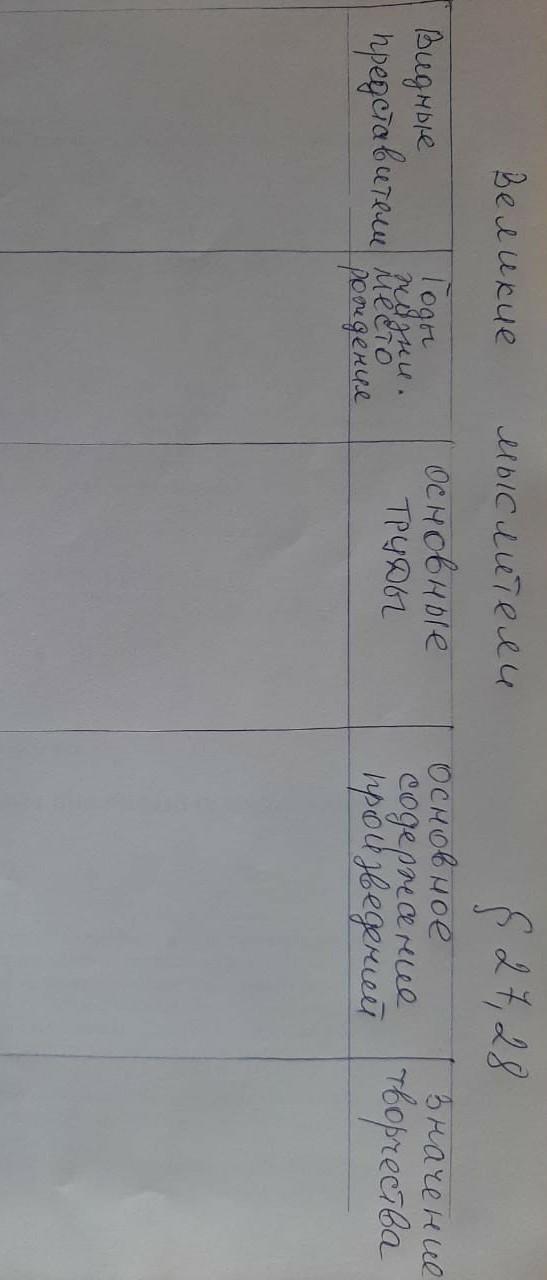 Великие мыслители § 27, 28
Видные
представители
Годы
жизни.
место
рождения
основные
труды
основное
содержание
произведений
значение
творчества